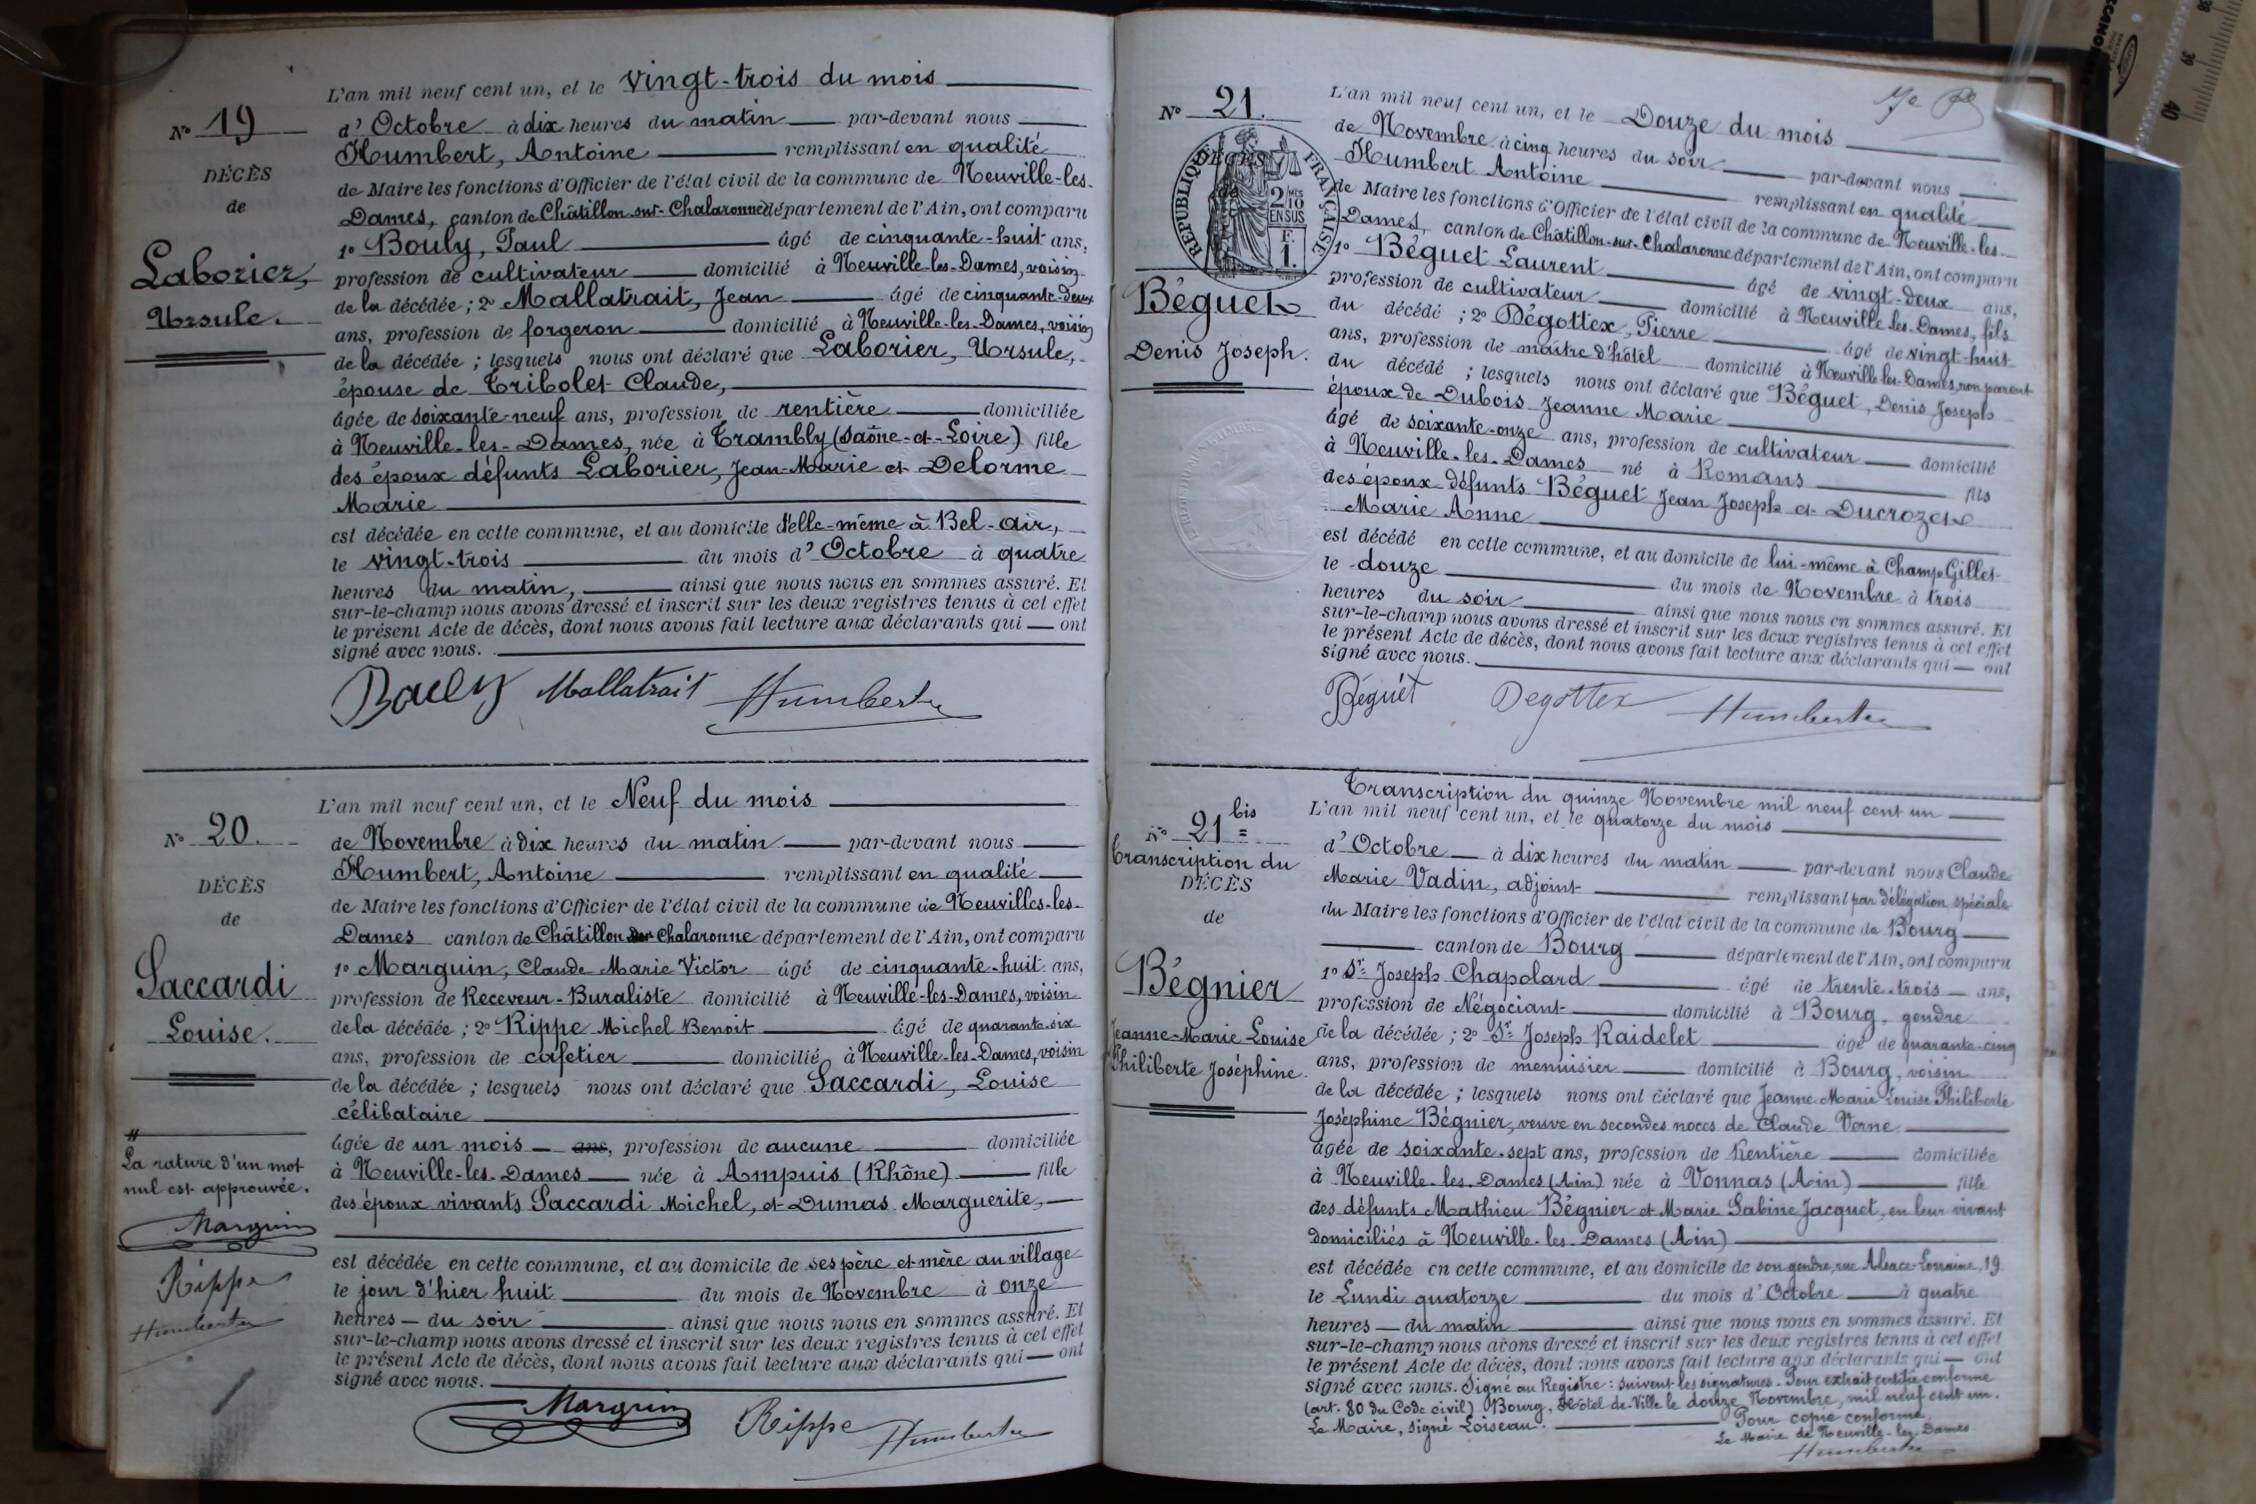 L'an mil neuf cent un, et le vingt-trois du mois
N° 19
d'Octobre à dix heures du matin par-devant nous
Humbert, Antoine remplissant en qualité
DÉCÈS
de Maire les fonctions d'Officier de l'état civil de la commune de Neuville-les-
de
Dames, canton de Châtillon-sur-Chalaronne département de l'Ain, ont comparu
1° Bouly, Paul âgé de cinquante-huit ans,
Laborier,
profession de cultivateur domicilié à Neuville-les-Dames, voisin
de la décédée ; 2° Mallatrait, Jean âgé de cinquante-deux
Ursule.
ans, profession de forgeron domicilié à Neuville-les-Dames, voisin
de la décédée ; lesquels nous ont déclaré que Laborier, Ursule,
épouse de Tribolet Claude,
âgée de soixante-neuf ans, profession de rentière domiciliée
à Neuville-les-Dames, née à Trambly (Saône-et-Loire) fille
des époux défunts Laborier, Jean-Marie et Delorme
Marie
est décédée en cette commune, et au domicile d'elle-même à Bel-air,
le vingt-trois du mois d'Octobre à quatre
heures du matin, ainsi que nous nous en sommes assuré. Et
sur-le-champ nous avons dressé et inscrit sur les deux registres tenus à cet effet
le présent Acte de décès, dont nous avons fait lecture aux déclarants qui — ont
signé avec nous.
Bouly Mallatrait Humbert
L'an mil neuf cent un, et le Neuf du mois
N° 20.
de Novembre à dix heures du matin par-devant nous
Humbert, Antoine remplissant en qualité
DÉCÈS
de Maire les fonctions d'Officier de l'état civil de la commune de Neuvilles-les-
de
Dames canton de Châtillon sur Chalaronne département de l'Ain, ont comparu
1° Marguin, Claude Marie Victor âgé de cinquante-huit ans,
Saccardi
profession de Receveur-Buraliste domicilié à Neuville-les-Dames, voisin
de la décédée ; 2° Rippe Michel Benoit âgé de quarante-six
Louise.
ans, profession de cafetier domicilié à Neuville-les-Dames, voisin
de la décédée ; lesquels nous ont déclaré que Saccardi, Louise
célibataire
âgée de un mois — ans, profession de aucune domiciliée
à Neuville-les-Dames née à Ampuis (Rhône) fille
des époux vivants Saccardi Michel, et Dumas Marguerite,
La rature d'un mot
nul est approuvée.
Marguin
Rippe
Humbert
est décédée en cette commune, et au domicile de ses père et mère au village
le jour d'hier huit du mois de Novembre à onze
heures — du soir ainsi que nous nous en sommes assuré. Et
sur-le-champ nous avons dressé et inscrit sur les deux registres tenus à cet effet
le présent Acte de décès, dont nous avons fait lecture aux déclarants qui — ont
signé avec nous.
Marguin Rippe Humbert
N° 21.
L'an mil neuf cent un, et le Douze du mois
de Novembre à cinq heures du soir par-devant nous
Humbert Antoine remplissant en qualité
RÉPUBLIQUE FRANÇAISE
2 MES
10
EN SUS
F.
1.
de Maire les fonctions d'Officier de l'état civil de la commune de Neuville-les-
Dames, canton de Châtillon-sur-Chalaronne département de l'Ain, ont comparu
1° Béguet Laurent âgé de vingt-deux ans,
profession de cultivateur domicilié à Neuville-les-Dames, fils
Béguet
du décédé ; 2° Dégottex, Pierre âgé de vingt-huit
ans, profession de maître d'hôtel domicilié à Neuville-les-Dames, non parent
Denis Joseph.
du décédé ; lesquels nous ont déclaré que Béguet, Denis Joseph
époux de Dubois Jeanne Marie
âgé de soixante-onze ans, profession de cultivateur domicilié
à Neuville-les-Dames né à Romans fils
des époux défunts Béguet Jean Joseph et Ducrozet
Marie Anne
est décédé en cette commune, et au domicile de lui-même à Champ Gilles
le douze du mois de Novembre à trois
heures du soir ainsi que nous nous en sommes assuré. Et
sur-le-champ nous avons dressé et inscrit sur les deux registres tenus à cet effet
le présent Acte de décès, dont nous avons fait lecture aux déclarants qui — ont
signé avec nous.
Béguet Degottex Humbert
Transcription du quinze Novembre mil neuf cent un
L'an mil neuf cent un, et le quatorze du mois
N° 21 bis
d'Octobre à dix heures du matin par-devant nous Claude
Transcription du
DÉCÈS
Marie Vadin, adjoint remplissant par délégation spéciale
de
du Maire les fonctions d'Officier de l'état civil de la commune de Bourg
canton de Bourg département de l'Ain, ont comparu
1° Sr Joseph Chapolard âgé de trente-trois ans,
Bégnier
profession de Négociant domicilié à Bourg, gendre
Jeanne-Marie Louise
de la décédée ; 2° Sr Joseph Raidelet âgé de quarante-cinq
Philiberte Joséphine.
ans, profession de menuisier domicilié à Bourg, voisin
de la décédée ; lesquels nous ont déclaré que Jeanne Marie Louise Philiberte
Joséphine Bégnier, veuve en secondes noces de Claude Verne
âgée de soixante-sept ans, profession de Rentière domiciliée
à Neuville-les-Dames (Ain) née à Vonnas (Ain) fille
des défunts Mathieu Bégnier et Marie Sabine Jacquet, en leur vivant
domiciliés à Neuville-les-Dames (Ain)
est décédée en cette commune, et au domicile de son gendre, rue Alsace-Lorraine, 19
le Lundi quatorze du mois d'Octobre à quatre
heures — du matin ainsi que nous nous en sommes assuré. Et
sur-le-champ nous avons dressé et inscrit sur les deux registres tenus à cet effet
le présent Acte de décès, dont nous avons fait lecture aux déclarants qui — ont
signé avec nous. Signé au Registre : suivent les signatures. Pour extrait certifié conforme
(art. 80 du Code civil) Bourg, Hôtel de Ville le douze Novembre, mil neuf cent un.
Le Maire, signé Loiseau.
Pour copie conforme,
Le Maire de Neuville-les-Dames
Humbert